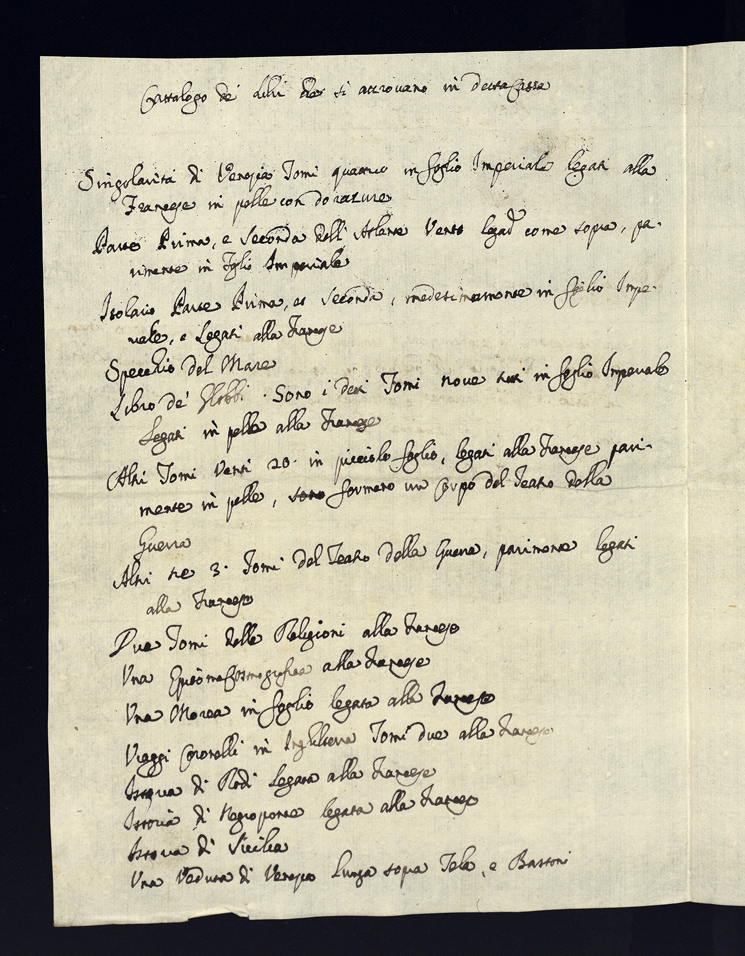 Cattalogo de' Libri che si attrovano in detta Cassa
Singolarità di Venezia Tomi quattro in foglio Imperiale legati alla
Franzese in pelle con dorature
Parte Prima, e Seconda dell' Atlante Veneto legad. come sopra, pa-
rimente in foglio Imperiale
Isolario Parte Prima, et Seconda, medesimamente in foglio Impe-
riale, e Legati alla Franzese
Specchio del Mare
Libro de' Globbi. Sono i detti Tomi nove tutti in foglio Imperiale
Legati in pelle alla Franzese
Altri Tomi Venti 20. in picciolo foglio, legati alla Franzese pari-
mente in pelle, formano un Corpo del Teatro della
Guerra
Altri tre 3. Tomi del Teatro della Guerra, parimente legati
alla Franzese
Due Tomi delle Religioni alla Franzese
Una Epitome Cosmografica alla Franzese
Una Morea in foglio legata alla Franzese
Viaggi Coronelli in Inghilterra Tomi due alla Franzese
Istoria di Rodi Legata alla Franzese
Istoria di Negroponte legata alla Franzese
Istoria di Sicilia
Una Veduta di Venezia Lunga sopra Tela, e Bastoni